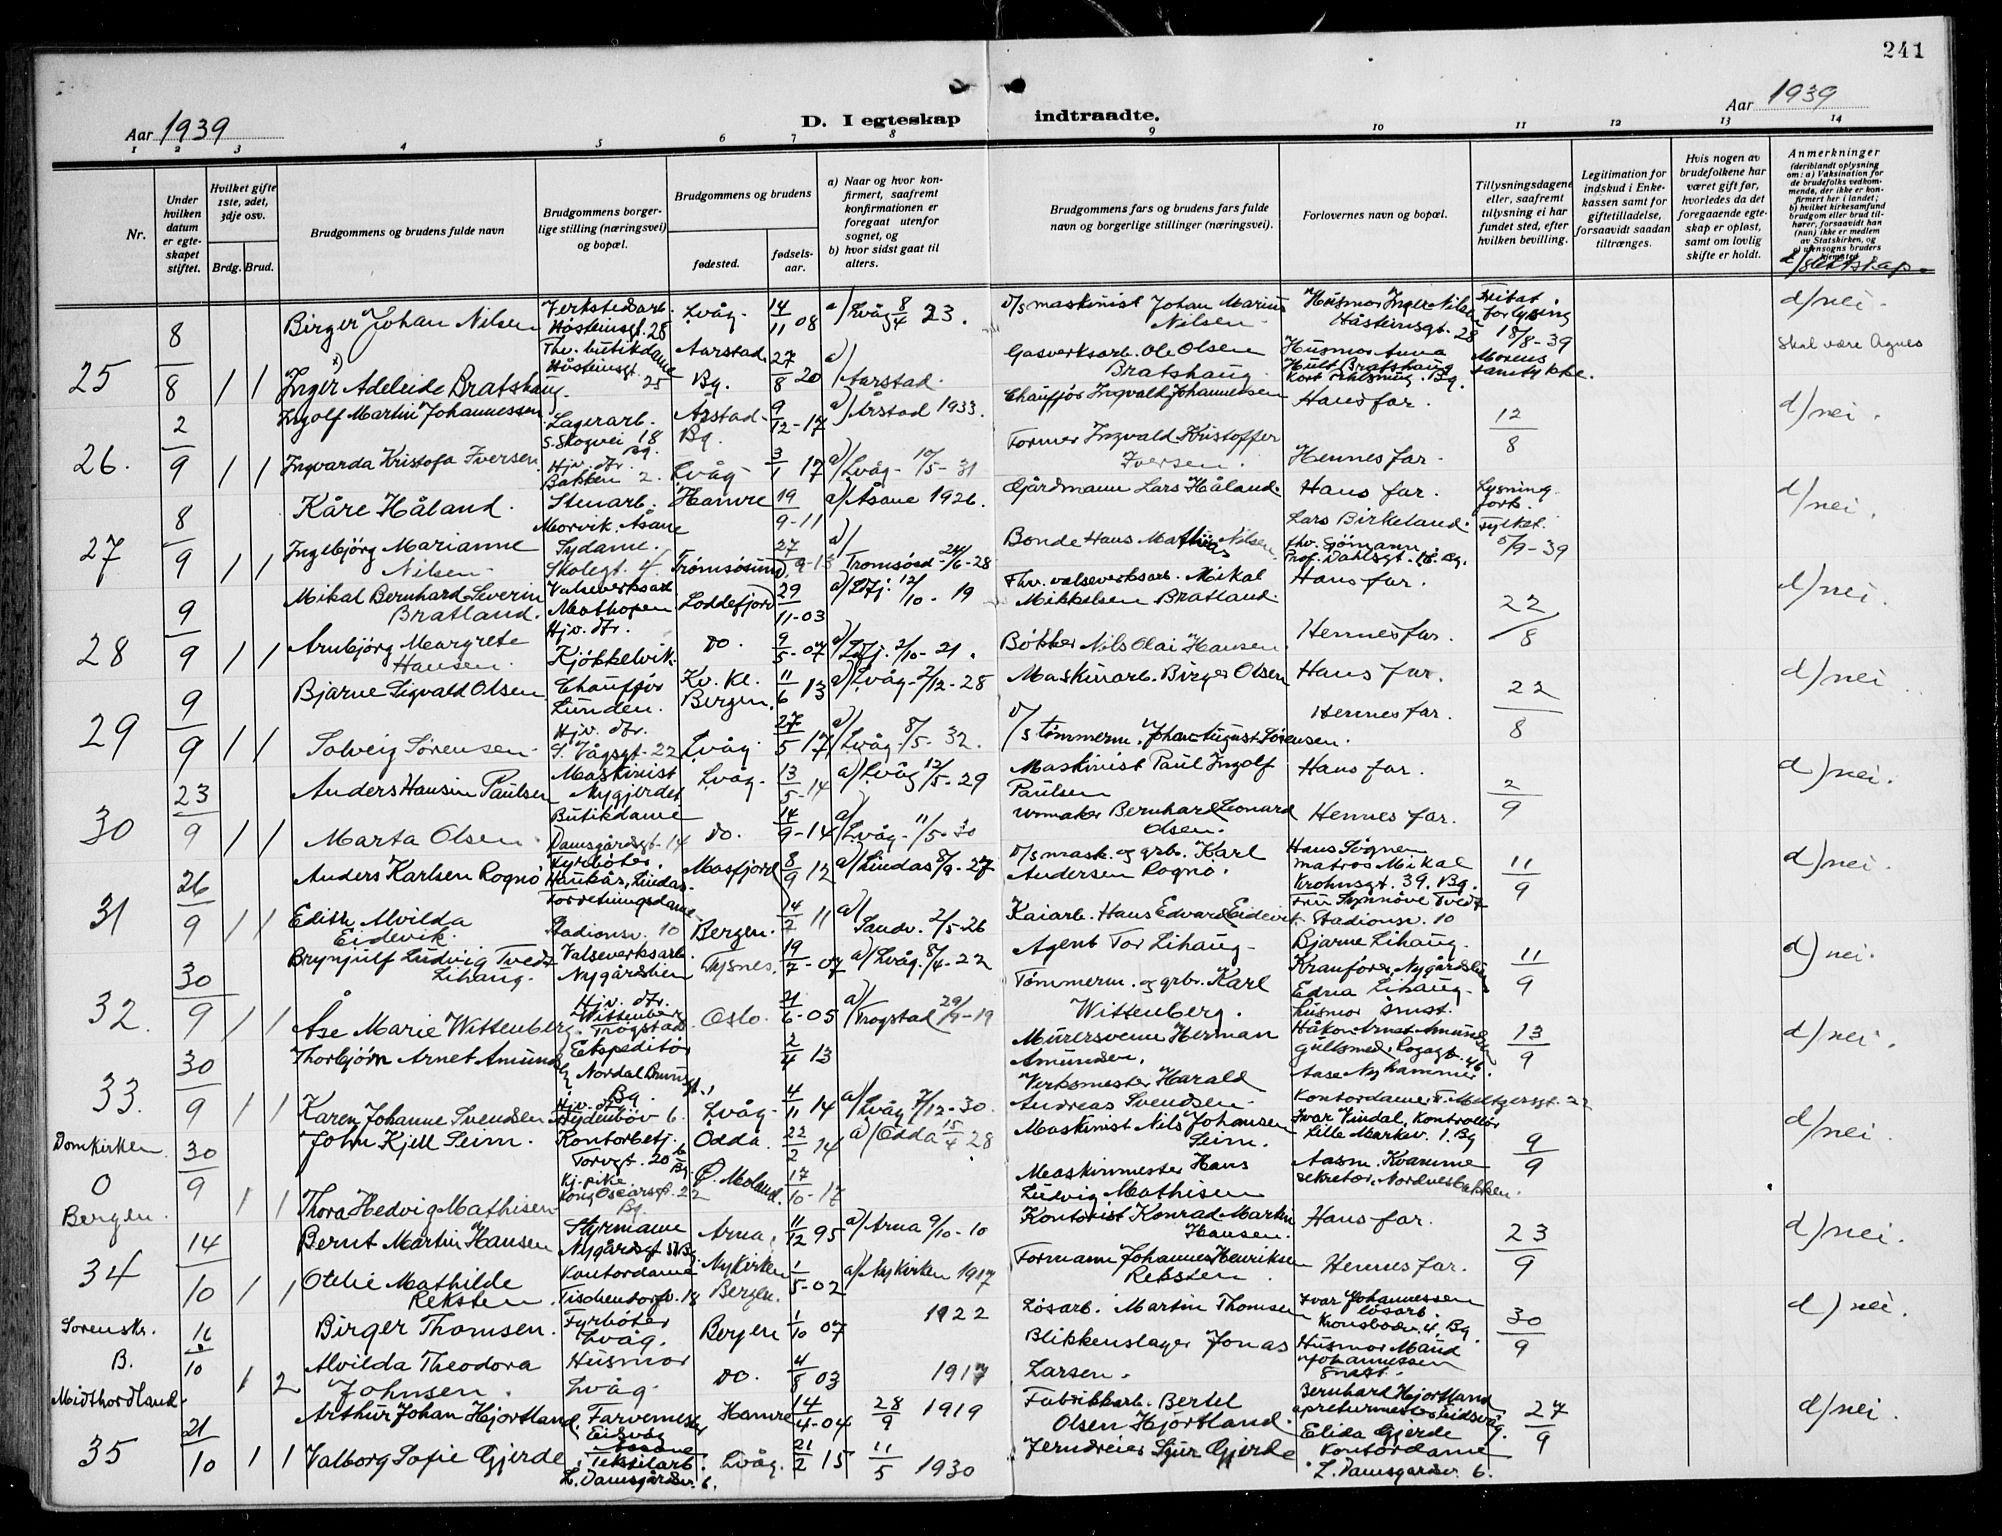 241
Aar 1939
D. I egteskap indtraadte.
Aar 1939
1 2 3 4 5 6 7 8 9 10 11 12 13 14
Nr.
Under hvilken datum er egteskapet stiftet.
Hvilket gifte 1ste, 2det, 3dje osv.
Brdg. Brud.
Brudgommens og brudens fulde navn
Brudgommens borgerlige stilling (næringsvei) og bopæl.
Brudgommens og brudens
fødested.
fødselsaar.
a) Naar og hvor konfirmert, saafremt konfirmationen er foregaat utenfor sognet, og
b) hvor sidst gaat til alters.
Brudgommens fars og brudens fars fulde navn og borgerlige stillinger (næringsvei).
Forlovernes navn og bopæl.
Tillysningsdagene eller, saafremt tillysning ei har fundet sted, efter hvilken bevilling.
Legitimation for indskud i Enkekassen samt for giftetilladelse, forsaavidt saadan tiltrænges.
Hvis nogen av brudefolkene har været gift før, hvorledes da det foregaaende egteskap er opløst, samt om lovlig skifte er holdt.
Anmerkninger
(deriblandt oplysning om: a) Vaksination for de brudefolks vedkommende, der ikke er konfirmert her i landet; b) hvilket kirkesamfund brudgom eller brud tilhører, forsaavidt han (hun) ikke er medlem av Statskirken, og c) utensogns bruders hjemsted.
d/slektskap.
25 8/8 1 1
Birger Johan Nilsen Verkstedsarb. Håsteinsgt. 28 Lvåg 14/11 08 a) Lvåg 8/4 23. D/s maskinist Johan Marius Nilsen Husmor Inger Nilsen Håsteinsgt. 28 18/8-39 d/nei.
Inger Adeleide Bratshaug Fhv. butikdame Håsteinsgt. 25 Aarstad Bg. 27/8 20 a) Aarstad. Gasverksarb. Ole Olsen Bratshaug Husmor Anna Bratshaug Skal være Agnes
26. 2/9 1 1
Ingolf Martin Johannessen Lagerarb. S. Skogvei 18 Bg. Årstad Bg. 9/12-17 a) Årstad 1933. Chauffør Ingvald Johannessen Hans far. 12/8 d/nei.
Ingvarda Kristofa Iversen Hjv. dtr. Bakken 2. Lvåg 3/1 17 a) Lvåg 10/5-31 Former Ingvald Kristoffer Iversen. Hennes far.
27 8/9 1 1
Kåre Håland. Stenarb. Morvik Åsane Hamre 19/9-11 a) Åsane 1926. Gårdmann Lars Håland. Hans far. Lysning 5/9-39 d/nei.
Ingebjörg Marianne Nilsen Sydame. Skolegt. 4 Tromsøsund 27/9-13 a) Tromsøsd 24/6-28 Bonde Hans Mathias Nilsen Lars Birkeland.
28 9/9 1 1
Mikal Bernhard Severin Bratland. Valseverksarb. Mathopen Loddefjord 29/11-03 a) Ldfj. 12/10-19 Fhv. valseverksarb. Mikal Mikkelsen Bratland. Hans far. 22/8 d/nei.
Arnbjörg Margrete Hansen. Hjv. dtr. Kjøkkelvik. Do. 9/5-07 a) Ldfj. 2/10-21. Bøkker Nils Olai Hansen Hennes far.
29 9/9 1 1
Bjarne Sigvald Olsen Chauffør Lunden. Kv. Kl. Bergen 11/6 13 a) Lvåg 2/12-28 Maskinarb. Birger Olsen Hans far. 22/8 d/nei
Solveig Sørensen Hjv. dtr. S. Vågsgt. 22 Lvåg 27/5 17 a) Lvåg 8/5-32. D/s tømmerm. Johan August Sørensen. Hennes far.
30 23/9 1 1
Anders Hansin Paulsen Maskinist Nygjerdet Lvåg 13/5-14 a) Lvåg 12/5-29 Maskinist Paul Ingolf Paulsen Hans far. 2/9 d/nei.
Marta Olsen Butikdame Damsgårdsgt. 14 Do. 14/9-14 a) Lvåg 11/5-30 Urmaker Bernhard Leonard Olsen. Hennes far.
31 26/9 1 1
Anders Karlsen Rognø Fyrbøter. Masfjord 8/9 12 a) Lindås 8/9-27 D/s mask. og grb. Karl Andersen Rognø. matros Mikal Krohnsgt. 39, Bg. 11/9 d/nei.
Edith Alvilda Eidevik Forretningsdame Stadionsv. 10 Bergen. 14/2 11 a) Sandv. 2/5-26 Kaiarb. Hans Edvard Eidevik Fru Synnöve Tvedt Stadionsv. 10
32. 30/9 1 1
Brynjulf Ludvig Tvedt Lihaug. Valseverksarb. Nygårdslien Tysnes. 19/7-07 a) Lvåg 8/4-22 Agent Tor Lihaug Bjarne Lihaug Kranfører, Nygårdslien 11/9 d) nei.
Åse Marie Wittenberg Hjv. dtr. Wittenberg Trøgstad Oslo. 21/6-05 a) Trøgstad 29/9-19 Tømmerm. og grb. Karl Wittenberg. Edna Lihaug husmor smst.
33. 30/9 1 1
Thorbjørn Arnet Amundsen Ekspeditør Nordal Brunsgt. 1 Bg. 2/4 13 Murersvenn Herman Amundsen. Håkon Arnet Amundsen gullsmed, 13/9 d/nei.
Karen Johanne Svendsen Hjv. dtr. Lvåg 4/11 14 a) Lvåg 7/12-30. Verksmester Harald Andreas Svendsen Aase Nyhammer Kontordame, F. Meltzersgt. 22
Domkirken O Bergen. 30/9 1 1
John Kjell Seim. Kontorbetj. Torvgt. 20 Bg. Odda. 22/2 14 a) Odda 15/4 28 Maskinist Nils Johansen Seim. Ivar Vindal, Kontrollør Lille Markev. 1. Bg 9/9 d/nei.
Thora Hedvig Mathisen Kj. pike Kong Oscarsgt. 22 Bg. Ø. Moland. 17/10-17 Maskinmester Hans Ludvig Mathisen Aasm. Kvamme sekretær, Nordnesbakken.
34 14/10 1 1
Bernt Martin Hansen Styrmann Nygårdsgt Arna. 11/12 95 a) Arna 9/10-10 Kontorist Konrad Martin Hansen. Hans far. 23/9 d/nei.
Otelie Mathilde Reksten Kontordame Tischendorfv. 18 Nykirken Bergen. 1/5-02 a) Nykirken 1917 Formann Johannes Henriksen Reksten Hennes far.
Sorenskr. B. Midthordland. 16/10 1 2
Birger Thomsen. Fyrbøter Lvåg. Bergen 1/10 07 1922 Løsarb. Martin Thomsen Ivar Johannessen løsarb. Bg. 30/9 d) nei.
Alvilda Theodora Johnsen. Husmor Lvåg. Do. 4/8 03 1917 Blikkenslager Jonas Larsen. Husmor Maud Johannessen smst.
35 21/10 1 1
Arthur Johan Hjortland Farvemester Eidsvåg Aasane Hamre 14/4-04 28/9 1919 Fabrikkarb. Bertel Olsen Hjortland. Bernhard Hjortland apreturmester Eidsvåg. 27/9 d/nei.
Valborg Sofie Gjerde Tekstilarb. L. Damsgårdsv. 6. Lvåg. 21/2 15 11/5 1930 Jerndreier Sjur Gjerde Elida Gjerde Kontordame L. Damsgårdsv. 6.